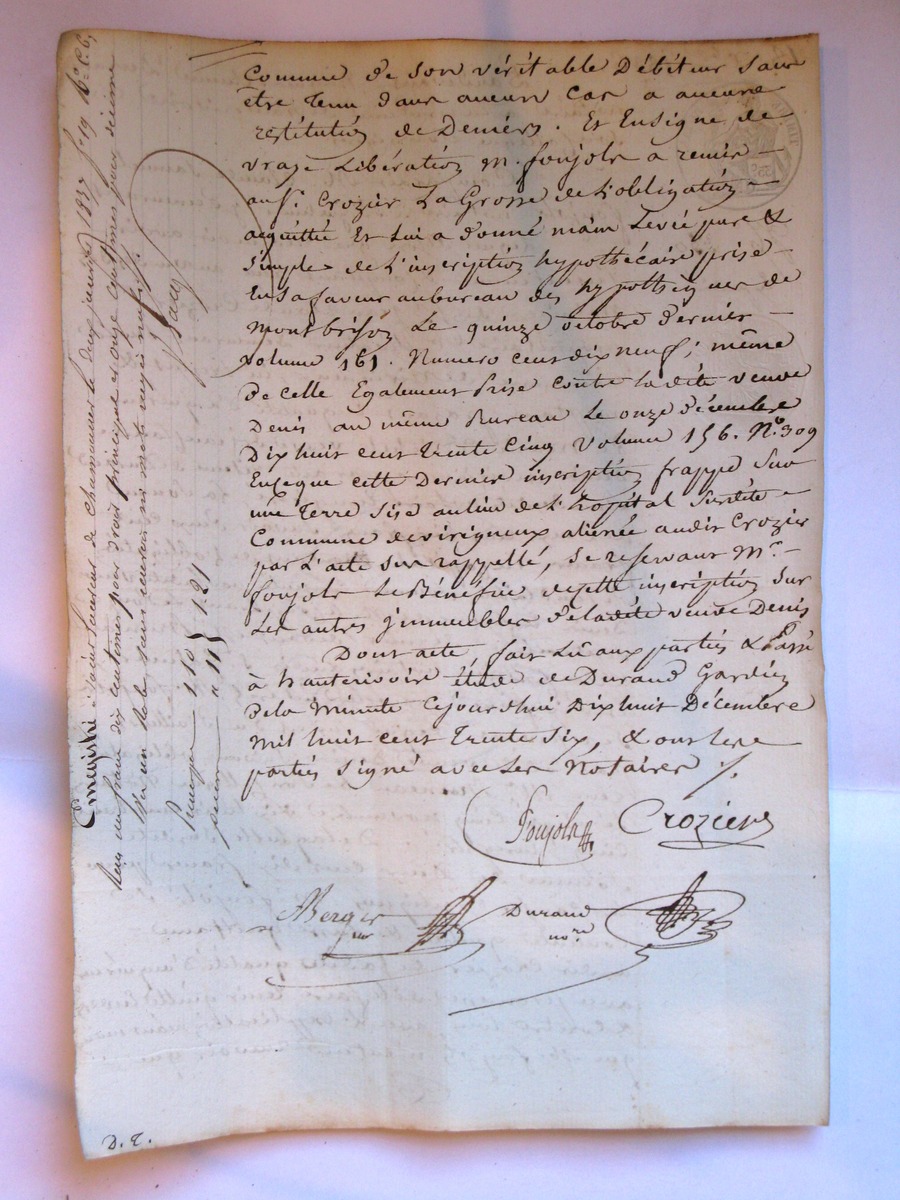 Comme de son véritable Débiteur sans
être Tenu dans aucun Cas a aucune
restitution de Deniers. Et En signe de
vraye Libération M. foujols a remis
au s.r Crozier La Grosse de L'obligation
acquittée Et Lui a donné main Levée pure &
simple de L'inscription hypothécaire prise
En sa faveur au bureau des hypothèques de
Montbrison Le quinze octobre dernier
volume 161. Numero cent dix neuf; même
de celle Egalement Prise contre la dite veuve
Denis au même Bureau Le onze décembre
Dix huit cent Trente Cinq volume 156. N.o 309
En ce que cette Derniere inscription frappe sur
une Terre sise au lieu de L'hopital susdite
Commune de virigneux alienée audit Crozier
par L'acte sus rappellé, se reservant M.r
foujols Le Bénéfice de cette inscription sur
Les autres jmmeubles de ladite veuve Denis
Dont acte fait Lu aux parties & Passé
à hauterivoire étude de Durand Gardien
de la Minute Cejourdhui Dix huit Décembre
Mil huit cent Trente Six, & ont les
parties signé avec les Notaires ./.
Foujols Crozier
Berger Durand
no.re
Enregistré à Saint Laurent de Chamousset le deux janvier 1837 f.o 19 R.o C. 6,
Reçu un franc dix centimes pour droit principal et onze centimes pour décime
1.10 } 1.21
" 11
D. T.